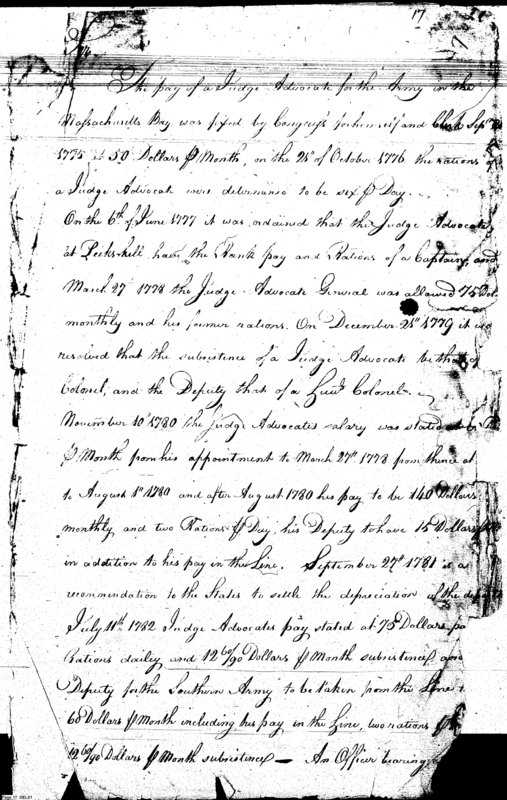 17
The pay of a Judge Advocate for the Army in the
Massachusetts Bay was fixed by Congress for himself and Clerk Sep
1775 at 50 Dollars ⅌ Month, on the 21st of October 1776 the rations of
a Judge Advocat were determined to be six ⅌ Day.
On the 6th of June 1777 it was ordained that the Judge Advocate
at Peekskill have the Rank pay and Rations of a Captain, and
March 27th 1778 the Judge Advocate General was allowed 75 Dol
monthly and his former rations. On December 21st 1779 it was
resolved that the subsistence of a Judge Advocate be that of
Colonel, and the Deputy that of a Lieut Colonel.
November 10th 1780 the Judge Advocates salary was stated
⅌ Month from his appointment to March 27th 1778 from thence
to August 1st 1780 and after August 1780 his pay to be 140 Dollars
monthly and two Rations ⅌ Day, his Deputy to have 15 Dollars
in addition to his pay in the Line. September 27th 1781 is a
recommendation to the States to settle the depreciation of the
July 11th 1782 Judge Advocates pay stated at 75 Dollars
Rations dailey and 12 60/90 Dollars ⅌ Month subsistence, and
Deputy for the Southern Army to be taken from the Line
60 Dollars ⅌ Month including his pay in the Line, two rations
12 60/90 Dollars ⅌ Month subsistence — An Officer bearing